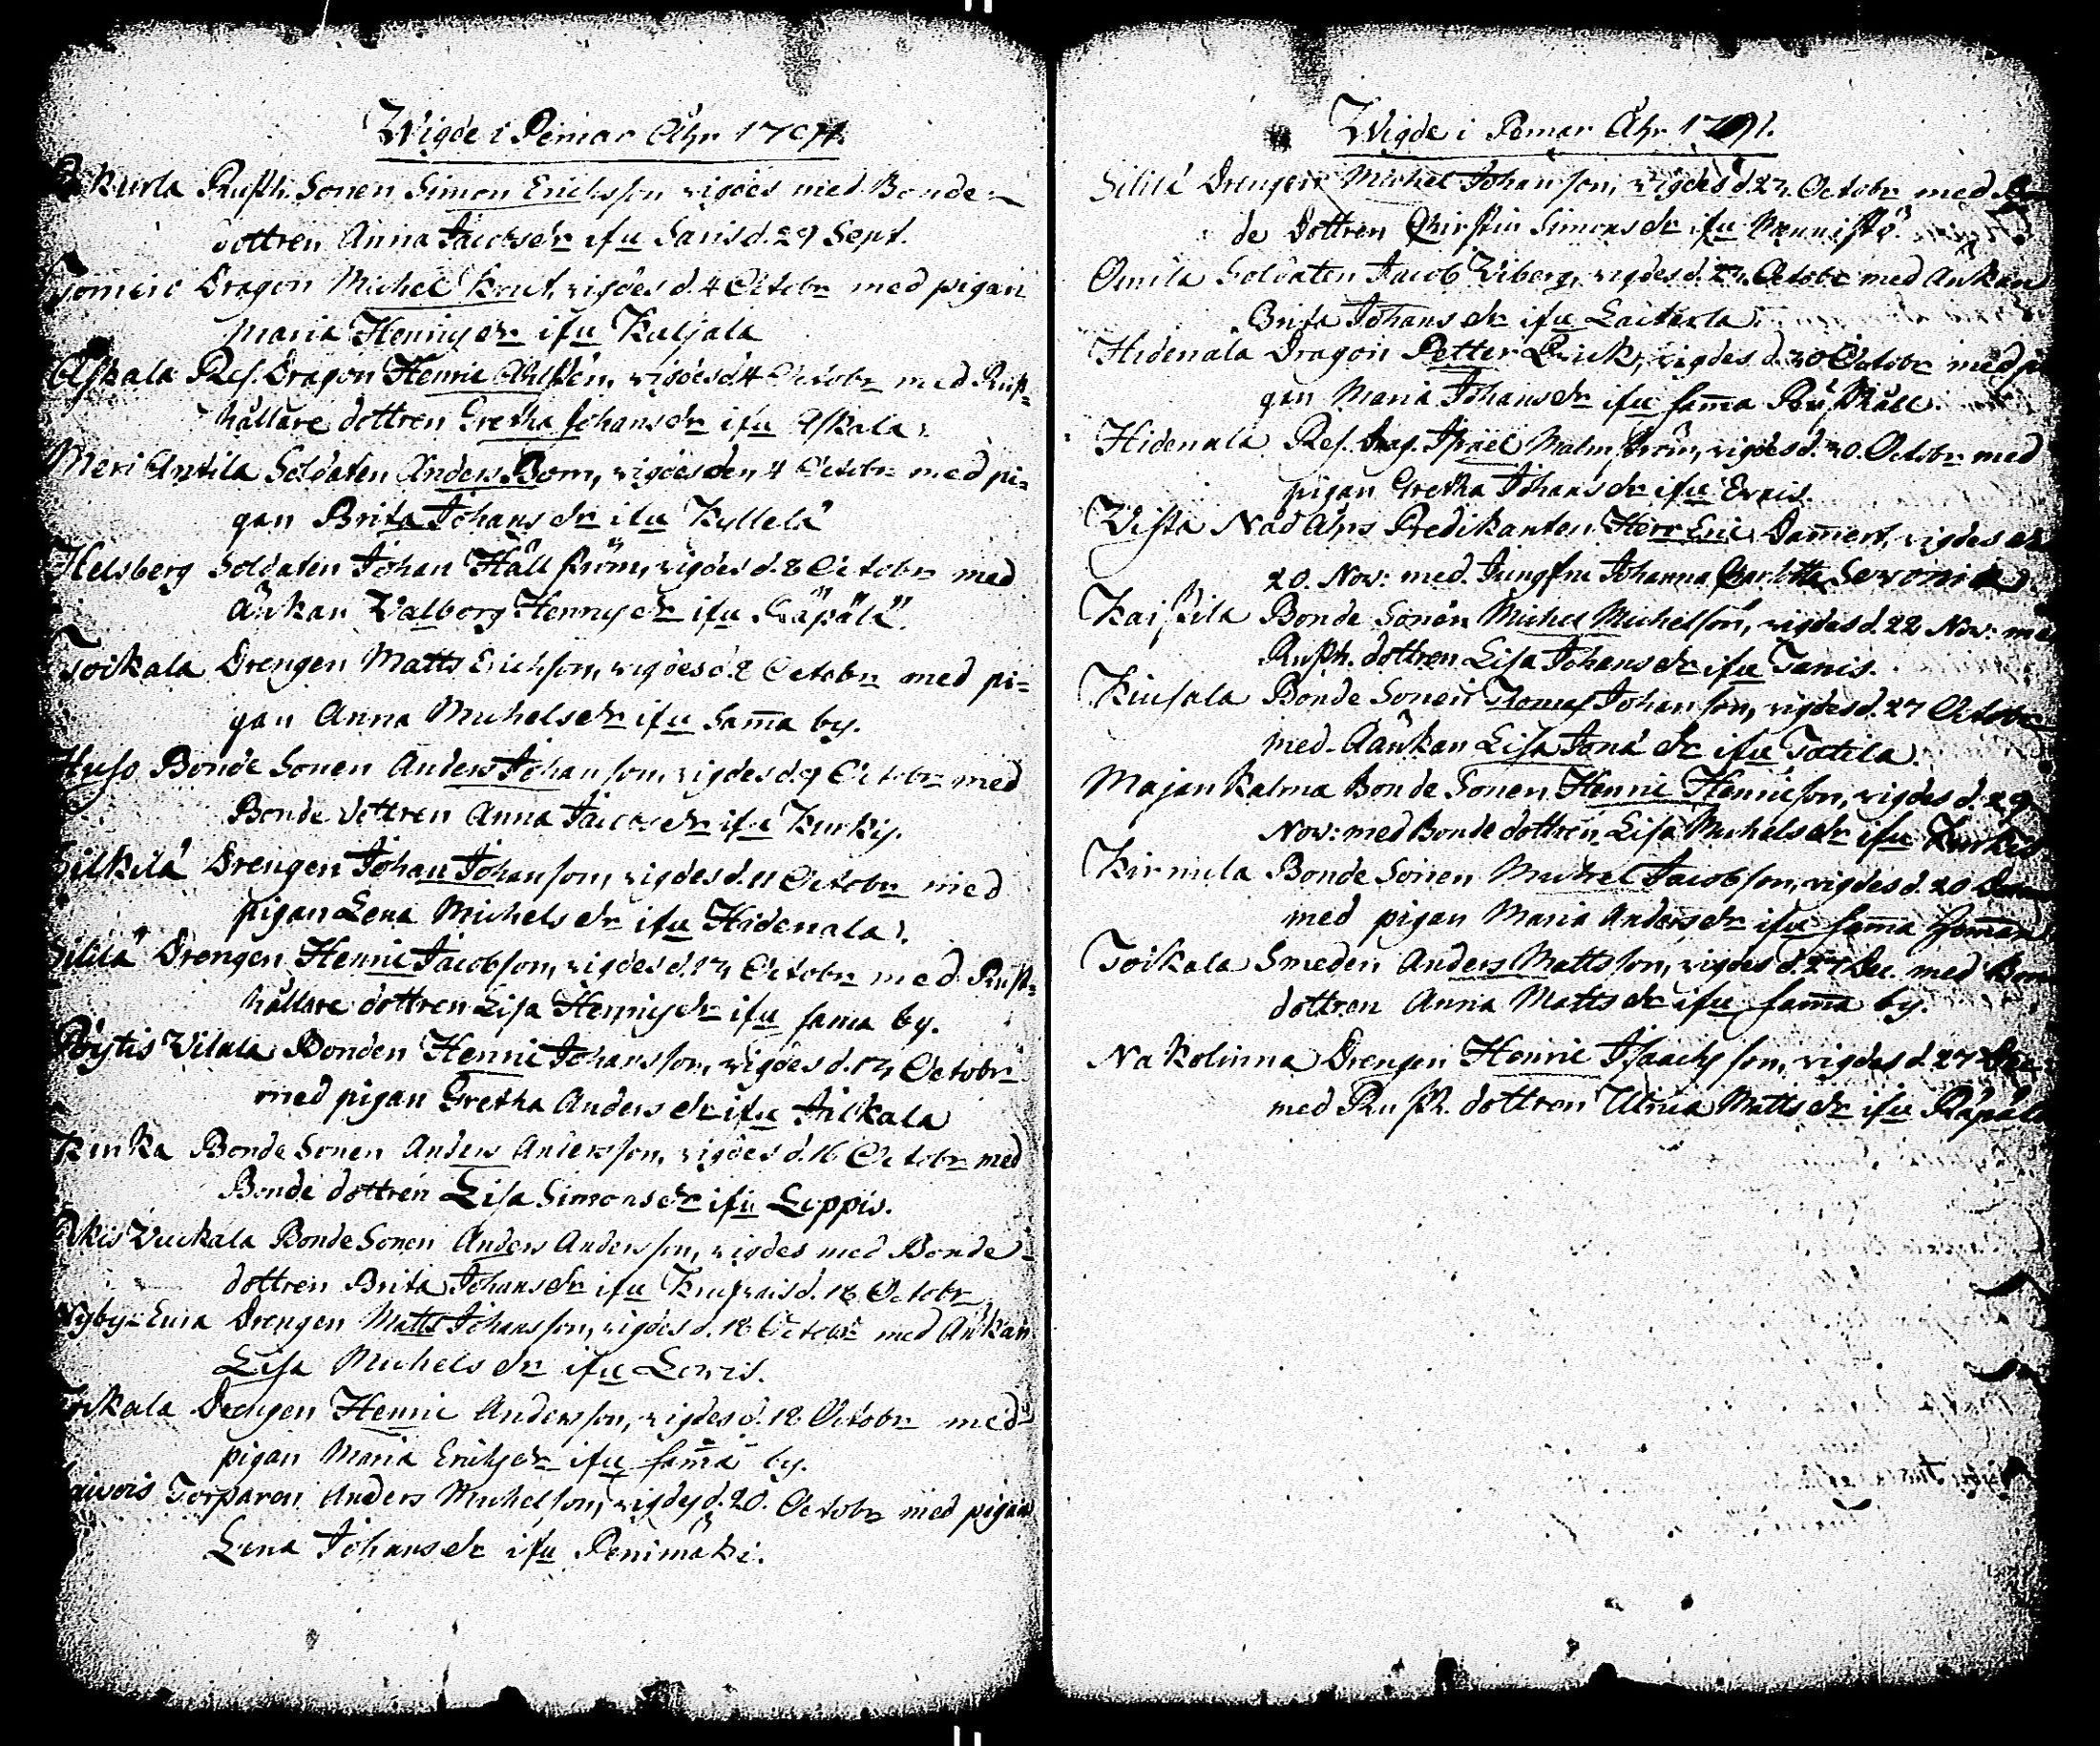 Wigde i Pemar Åhr 1791.
Rusth. Sonen Simon Erichsson vigdes med Bonde-
dottren Anna Jacobsdr ifrå Saris d. 29 Sept.
Dragon Michel Knut, vigdes d. 4 Octobr med pigan
Maria Henricsdr ifrå Kaljala
Askala Res. Dragon Henric Ahlsten, vigdes d 4 Octobr med Rust-
hållare dottren Gretha Johansdr ifrå Askala.
Meri Antila Soldaten Anders Bom, vigdes den 4 Octobr med pi-
gan Brita Johansdr ifrå Kyllelä
Helsberg Soldaten Johan Hällström, vigdes d. 8 Octobr med
Änkan Walborg Henricsdr ifrå Räpälä.
Toikala Drengen Matts Erichson, vigdes d. 8 Octobr med pi-
gan Anna Michelsdr ifrå Samma by.
Huso Bonde Sonen Anders Johansson, vigdes d. 9 Octobr med
Bonde dottren Anna Jacobsdr ifrå Kurkis.
Drengen Johan Johansson, vigdes d. 11 Octobr med
pigan Lena Michelsdr ifrå Hidenala.
Drengen Henric Jacobson, vigdes d. 13 Octobr med Rust-
hållare dottren Lisa Henricsdr ifrå sama by.
Pöytis Vilala Bonden Henric Johansson, vigdes d. 13 Octobr
med pigan Gretha Andersdr ifrå Jilkala
Kurka Bonde Sonen Anders Andersson, vigdes d. 16 Octobr med
Bonde dottren Lisa Simonsdr ifrå Loppis.
Bonde Sonen Anders Andersson, vigdes med Bonde-
dottren Brita Johansdr ifrå d. 18 Octobr
Drengen Matts Johansson, vigdes d. 18 Octobr med Änkan
Lisa Michelsdr ifrå Lowis.
Drengen Henric Andersson, vigdes d. 18 Octobr med
pigan Maria Ericsdr ifrå sama by.
Torparen Anders Michelson, vigdes d. 20. Octobr med pigan
Lena Johansdr ifrå Penimäki.
Wigde i Pemar Åhr 1791.
Sililä Drengen Michel Johansson, vigdes d. 23 Octobr med Bon
de Dottren Chirstin Simonsdr ifrå Nennistö.
Onnila Soldaten Jacob Wiberg, vigdes d. 23. Octobr med Änkan
Brita Johansdr ifrå Laiterla.
Hidenala Dragon Petter Quick, vigdes d. 30 Octobr med pi
gan Maria Johansdr ifrå samma Rusthåll.
Hidenala Res. Drag. Israel Malmström, vigdes d. 30. Octobr med
pigan Gretha Johansdr ifrå Evais.
Wista Nåd Åhrs Predikanten Herr Eric Dammert, vigdes d
20. Nov: med Jungfru Johanna Charlotta Sevonia
Kaistila Bonde Sonen Michel Michelson, vigdes d. 22 Nov: med
Rusth. dottren Lisa Johansdr ifrå Tanis.
Kiusala Bonde Sonen Thomas Johansson, vigdes d. 27 Octobr
med Äankan Lisa Jonä dr ifrå Tattila.
Majankalma Bonde Sonen Henric Henricson, vigdes d. 29
Nov: med Bonde dottren Lisa Michelsdr ifrå Kurkis
Kirmula Bonde Sonen Michel Jacobson, vigdes d. 20 Dec
med pigan Maria Andersdr ifrå sama heman
Toikala Smeden Anders Mattsson, vigdes d. 27 Dec. med Bon
dottren Anna Mattsdr ifrå sama by.
Nakolinna Drengen Henric Isaacsson, vigdes d. 27 Dec:
med Rusth. dottren Ulrica Mattsdr ifrå Räpälä